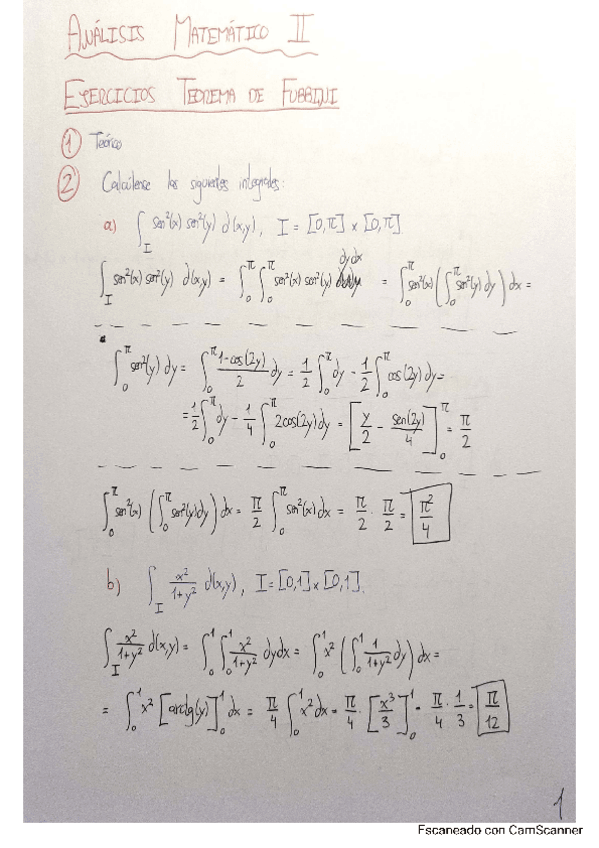 ANÁLISIS MATEMÁTICO II
EJERCICIOS TEOREMA DE FUBBINI
1 Teórico
2 Calcúlense las siguientes integrales:
a) ∫_I sen²(x) sen²(y) d(x,y), I = [0,π] × [0,π]
∫_I sen²(x) sen²(y) d(x,y) = ∫₀^π ∫₀^π sen²(x) sen²(y) dydx = ∫₀^π sen²(x) (∫₀^π sen²(y) dy) dx =
∫₀^π sen²(y) dy = ∫₀^π (1-cos(2y))/2 dy = 1/2 ∫₀^π dy - 1/2 ∫₀^π cos(2y) dy =
= 1/2 ∫₀^π dy - 1/4 ∫₀^π 2cos(2y) dy = [y/2 - sen(2y)/4]₀^π = π/2
∫₀^π sen²(x) (∫₀^π sen²(y) dy) dx = π/2 ∫₀^π sen²(x) dx = π/2 · π/2 = π²/4
b) ∫_I x²/(1+y²) d(x,y), I = [0,1] × [0,1].
∫_I x²/(1+y²) d(x,y) = ∫₀¹ ∫₀¹ x²/(1+y²) dydx = ∫₀¹ x² (∫₀¹ 1/(1+y²) dy) dx =
= ∫₀¹ x² [arctg(y)]₀¹ dx = π/4 ∫₀¹ x² dx = π/4 · [x³/3]₀¹ = π/4 · 1/3 = π/12
1
Escaneado con CamScanner